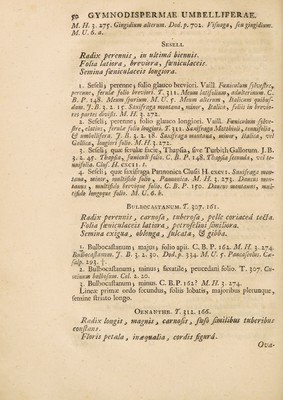 50 GYMNODISPERMAE UMBELLIFERAE.
M. H. 3. 275. Gingidium alterum. Dod. p. 702. Visnaga, seu gingidium.
M. U. 6. a.
SESELI.
Radix perennis, in ultima biennis.
Folia latiora, breviora, fœniculaceis.
Semina fœniculaceis longiora.
1. Seseli; perenne; folio glauco breviori. Vaill. Fœniculum sylvestre,
perenne, ferulæ folio breviori. T. 311. Meum latifolium, adulterinum. C.
B. P. 148. Meum spurium. M. U. 5. Meum alterum, Italicum quibusdam.
J. B. 3. 2. 15. Saxifraga montana, minor, Italica, foliis in breviores
partes divisis. M. H. 3. 272.
2. Seseli; perenne; folio glauco longiori. Vaill. Fœniculum sylvestre,
elatius, ferulæ folio longiori. T. 311. Saxifraga Matthioli, tenuifolia,
& umbellifera. J. B. 3. 2. 18. Saxifraga montana, minor, italica, vel
Gallica, longiori folio. M. H. 3. 272.
3. Seseli; quæ ferulæ facie, Thapsia, sive Turbith Gallorum. J. B.
3. 2. 45. Thapsia, fœniculi folio. C. B. P. 148. Thapsia secunda, vel tenuifolia.
Clus. H. CXCII. I.
4. Seseli; quæ saxifraga Pannonica Clusii H. CXCVI. Saxifraga montana,
minor, multifido folio, Pannonica. M. H. 3. 273. Daucus montanus,
multifido brevique folio. C. B. P. 150. Daucus montanus, multifido
longoque folio. M. U. 6. b.
BULBOCASTANUM. T. 307. 161.
Radix perennis, carnosa, tuberosa, pelle coriacea tecta.
Folia fœniculaceis latiora, petroselini similiora.
Semina exigua, oblonga, sulcata, & gibba.
1. Bulbocastanum; majus; folio apii. C. B. P. 162. M. H. 3. 274.
Bulbocastanum. J. B. 3. 2. 30. Dod. p. 334. M. U. 5. Pancaseolus. Cæsalp.
293. †.
2. Bulbocastanum; minus, saxatile, peucedani folio. T. 307. Œnium
bulbosum. Col. 2. 20.
3. Bulbocastanum; minus. C. B. P. 162? M. H. 3. 274.
Lineæ primæ ordo secundus, foliis lobatis, majoribus plerunque,
semine striato longo.
OENANTHE. T. 312. 166.
Radix longis, magnis, carnosis, fuso similibus tuberibus
constans.
Floris petala, inæqualia, cordis figurâ.
Ova-